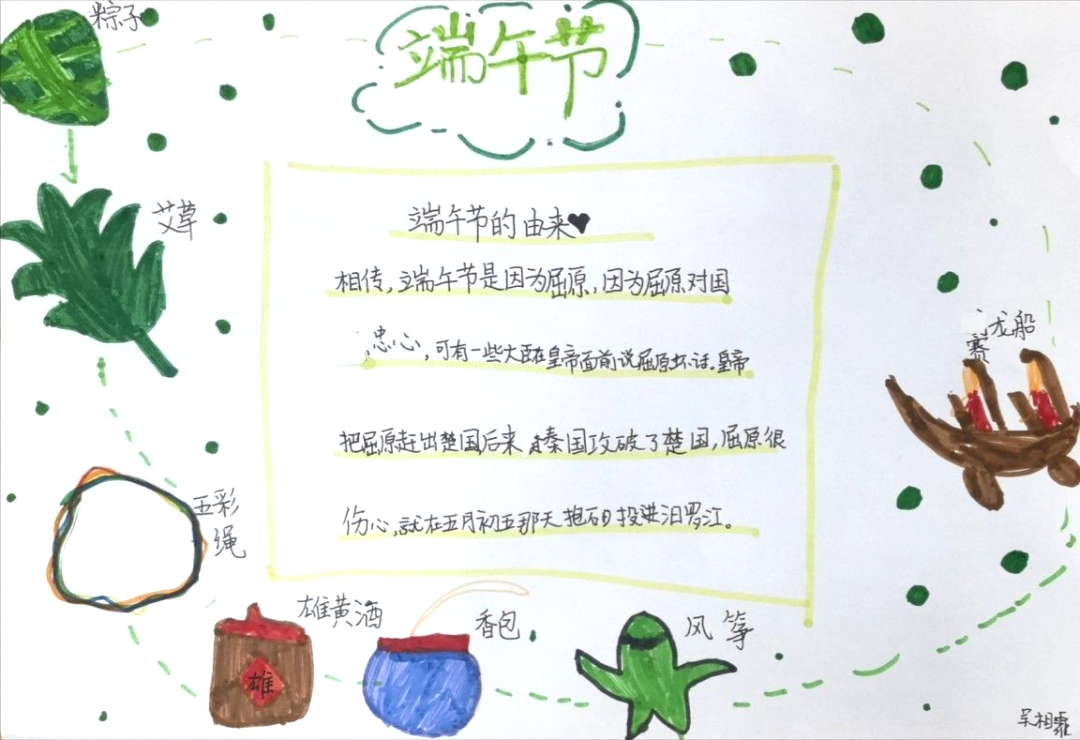 粽子
端午节
艾草
端午节的由来♥
相传,端午节是因为屈原,因为屈原对国
忠心,可有一些大臣在皇帝面前说屈原坏话。皇帝
把屈原赶出楚国后来,秦国攻破了楚国,屈原很
伤心,就在五月初五那天抱石投进汨罗江。
龙船
赛
五彩
绳
雄黄酒
雄
香包
风筝